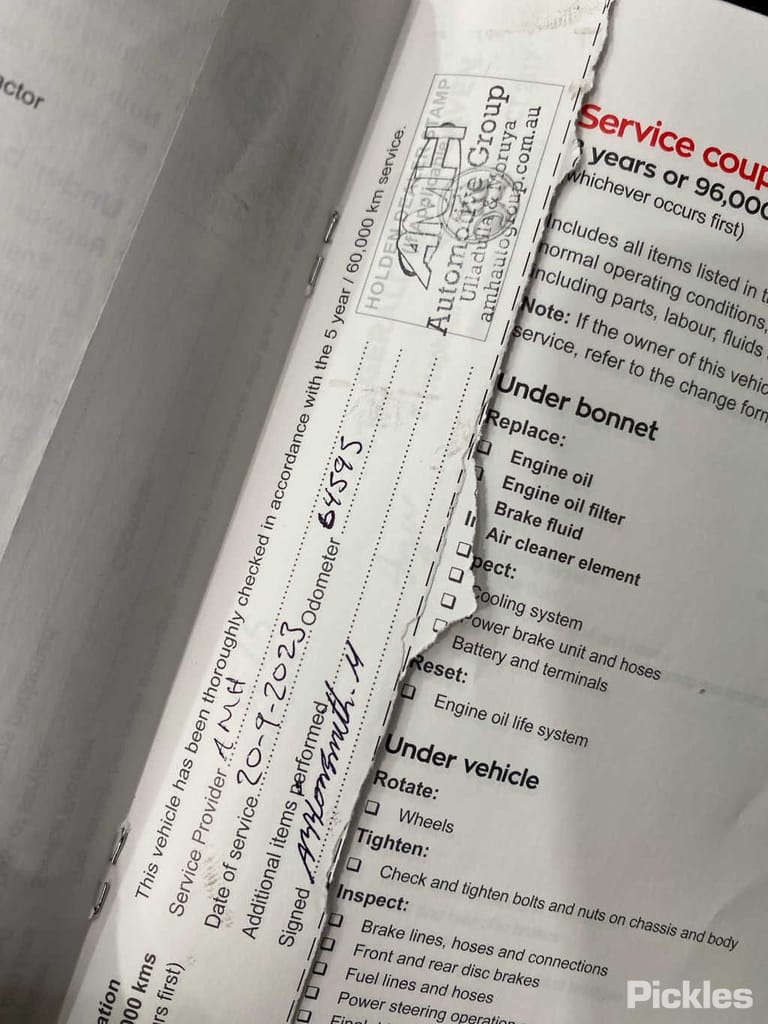 actor
This vehicle has been thoroughly checked in accordance with the 5 year / 60,000 km service.
Service Provider AMH
Date of service 20-9-2023 Odometer 64595
Additional items performed
Signed
HOLDEN DEALER STAMP
AMH
Automotive Group
Ulladulla & Moruya
amhautogroup.com.au
ation
000 kms
rs first)
Service coup
years or 96,000
whichever occurs first)
Includes all items listed in t
normal operating conditions,
including parts, labour, fluids
Note: If the owner of this vehic
service, refer to the change form
Under bonnet
Replace:
Engine oil
Engine oil filter
Brake fluid
Air cleaner element
In
pect:
Cooling system
Power brake unit and hoses
Battery and terminals
Reset:
Engine oil life system
Under vehicle
Rotate:
Wheels
Tighten:
Check and tighten bolts and nuts on chassis and body
Inspect:
Brake lines, hoses and connections
Front and rear disc brakes
Fuel lines and hoses
Power steering operation
Final
Pickles